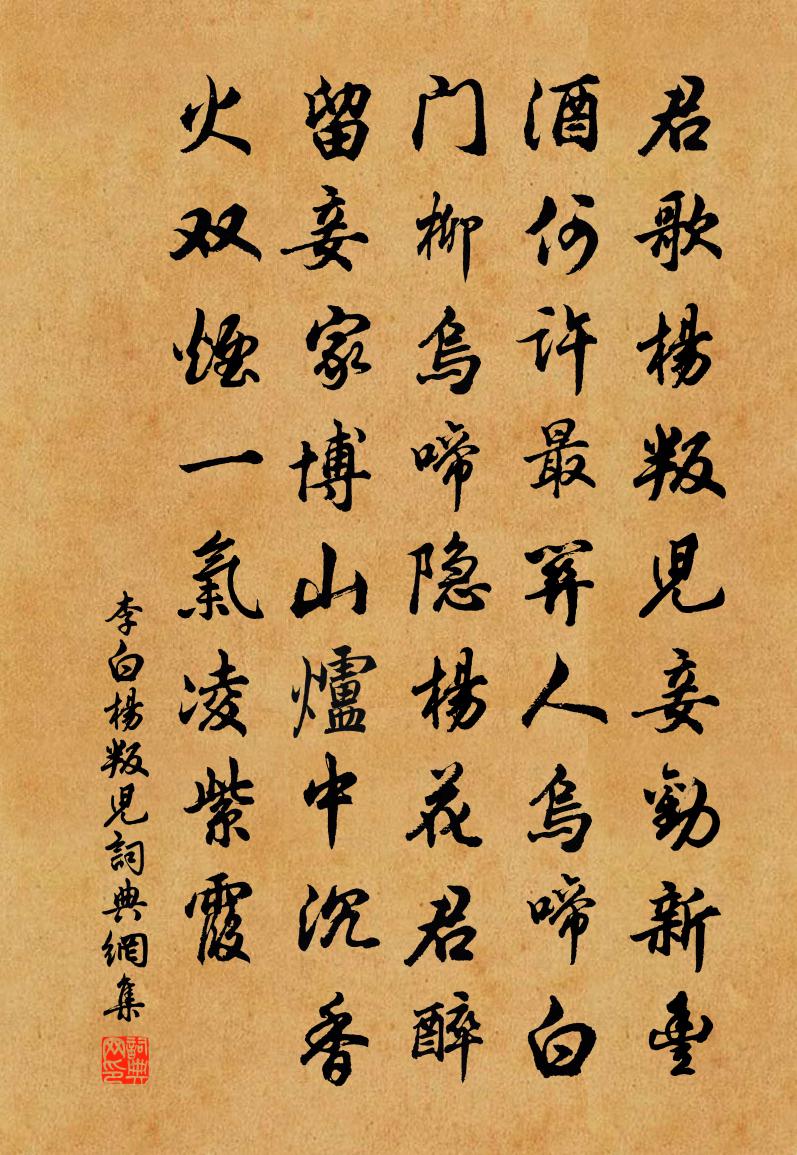 君歌楊叛兒妾勸新豐
酒何許最關人烏啼白
门柳烏啼隐楊花君醉
留妾家博山爐中沉香
火双煙一氣凌紫霞
李白楊叛兒詞典網集
詞典网印